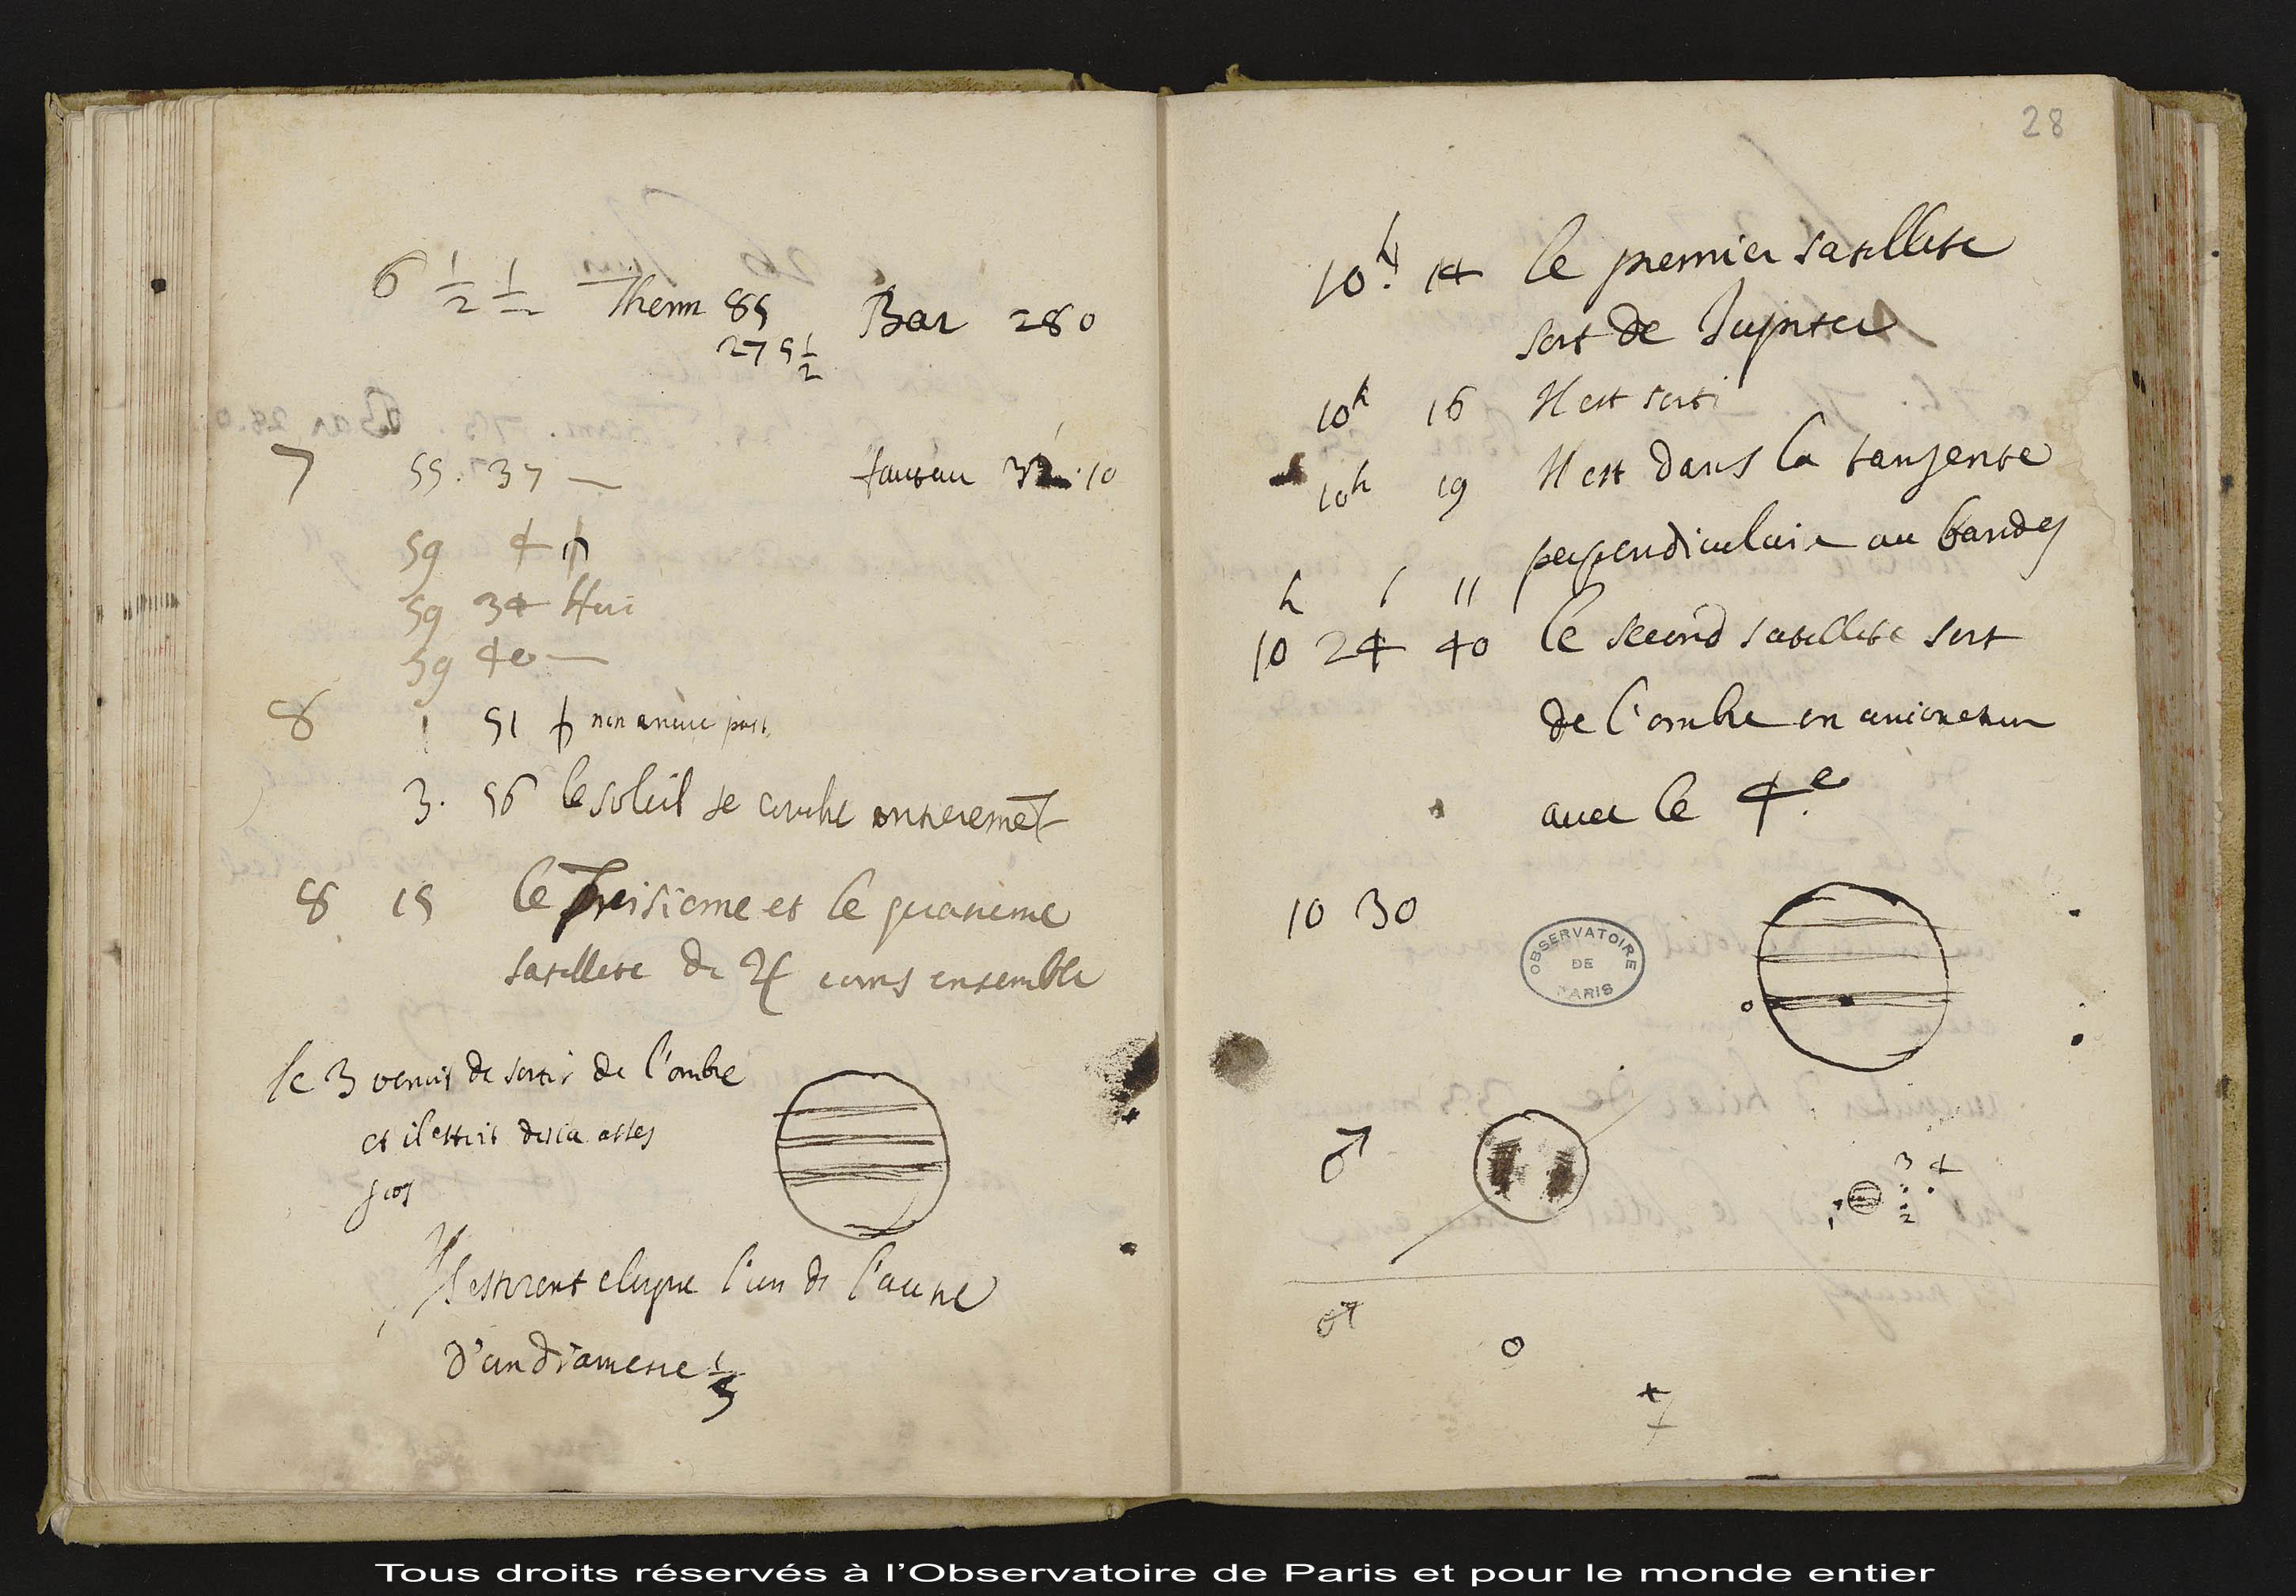 6 1/2 1/2 Therm 85 Bar 280
275 1/2
7 55. 37 — 10
59 4
59 34
59 40 —
8 1 51 non encore
3. 56 le soleil se couche entieremēt
8 15 le Troisieme et le quatrieme
satellite de ♃ ensemble
le 3 venoit de sortir de l'ombre
et il estoit desia asses
gros
Il estoient eloigne l'un de l'autre
d'un diametre 1/3
28
10h. 14 le premier satellite
sort de Jupiter
10h 16 Il est sorti
10h 19 Il est dans la tangente
perpendiculaire au bandes
h ' "
10 24 40 le second satellite sort
de l'ombre en
avec le 4e.
10 30
OBSERVATOIRE
DE
PARIS
♂
3 4
1 2
♂
Tous droits réservés à l'Observatoire de Paris et pour le monde entier